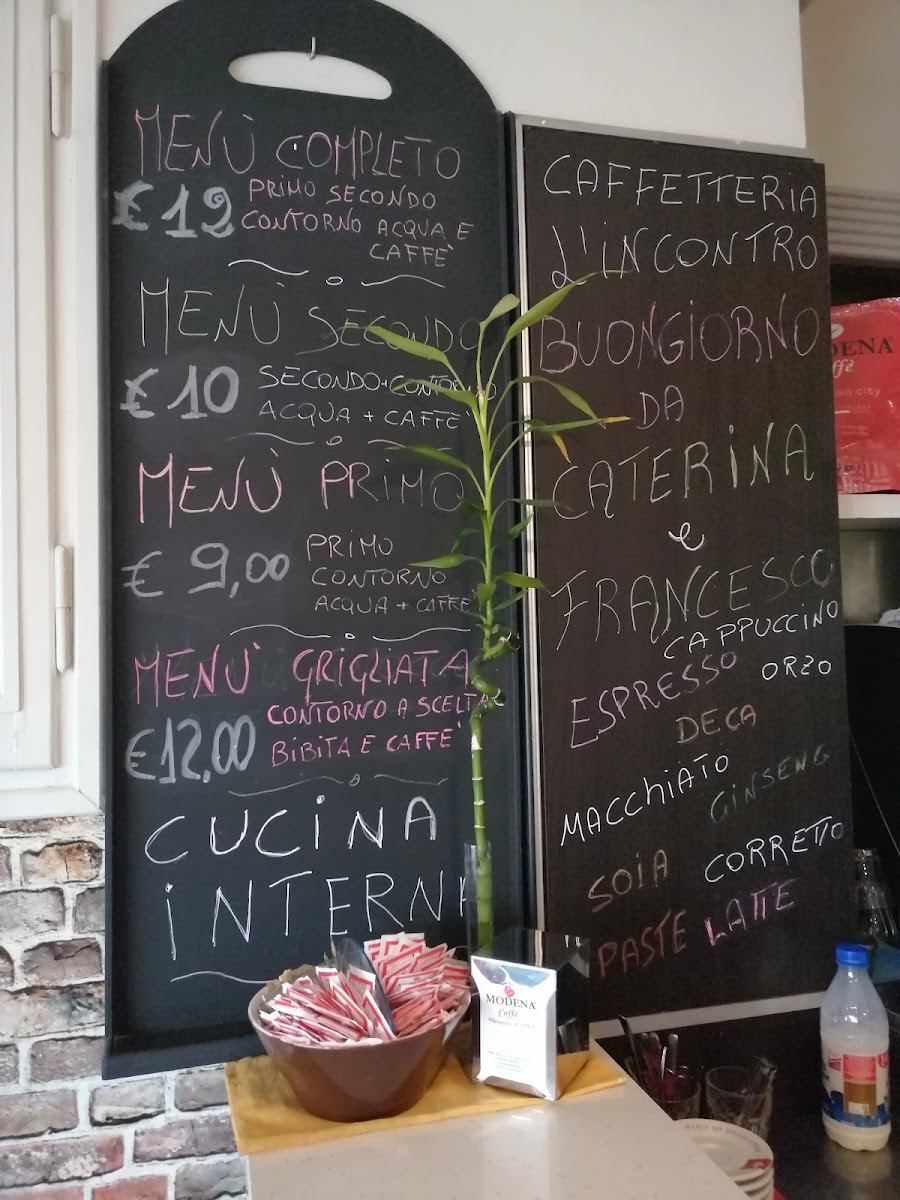 MENÙ COMPLETO
€ 12 PRIMO SECONDO
CONTORNO ACQUA E
CAFFÈ
MENÙ SECONDO
€ 10 SECONDO+CONTORNO
ACQUA + CAFFÈ
MENÙ PRIMO
€ 9,00 PRIMO
CONTORNO
ACQUA + CAFFÈ
MENU' GRIGLIATA
€12,00 CONTORNO A SCELTA
BIBITA E CAFFE'
CUCINA
INTERNA
CAFFETTERIA
L'INCONTRO
BUONGIORNO
DA
CATERINA
e
FRANCESCO
CAPPUCCINO
ESPRESSO ORZO
DECA
MACCHIATO GINSENG
SOIA CORRETTO
PASTE LATTE
MODENA
Caffè